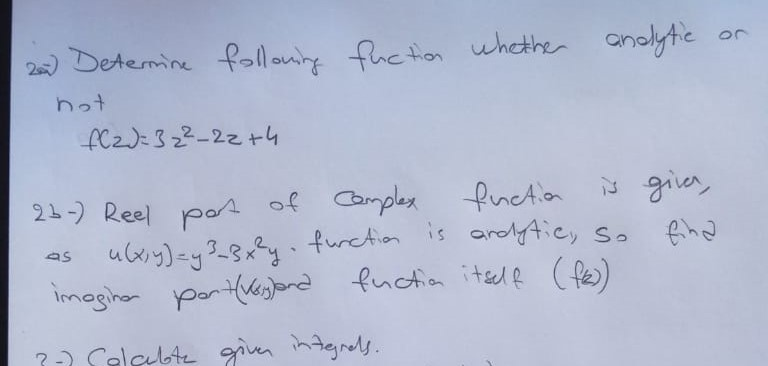 2a-) Determine following fuction whether analytic or
not
f(z)=3z²-2z+4
2b-) Reel part of complex function is given,
as u(x,y)=y³-3x²y. function is analytic, so find
imaginer part(V(x,y)) and fuction itself (f(z))
3-) Calculate given integrals.